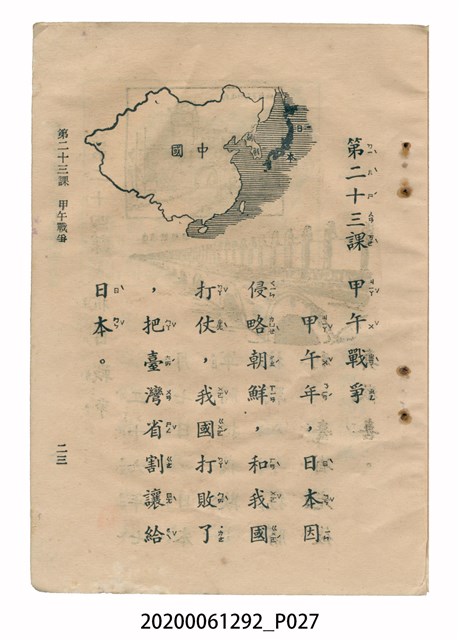 第二十三課 甲午戰爭
甲午年，日本因
侵略朝鮮，和我國
打仗，我國打敗了
，把臺灣省割讓給
日本。
中國
日本
第二十三課 甲午戰爭
二三
20200061292_P027